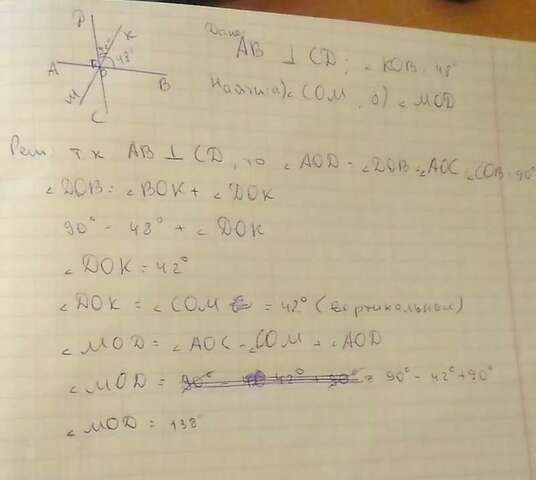 D
K
42°
48°
A
O
B
M
C
Дано:
AB ⊥ CD; ∠KOB = 48°
Найти: а) ∠COM, б) ∠MOD
Реш: т.к AB ⊥ CD, то ∠AOD = ∠DOB = ∠AOC = ∠COB = 90°
∠DOB = ∠BOK + ∠DOK
90° = 48° + ∠DOK
∠DOK = 42°
∠DOK = ∠COM = 42° (вертикальные)
∠MOD = ∠AOC - ∠COM + ∠AOD
∠MOD = 90° - 42° + 90° = 90° - 42° + 90°
∠MOD = 138°